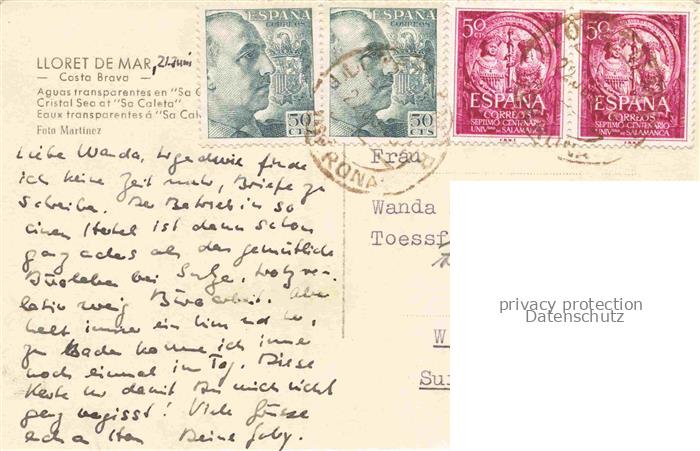 LLORET DE MAR, 21. Juni
— Costa Brava —
Aguas transparentes en "Sa C
Cristal Sea at "Sa Caleta"
Eaux transparentes á "Sa Cal
Foto Martínez
Liebe Wanda, irgendwie finde
ich keine Zeit mehr, Briefe zu
schreiben. Der Betrieb in so
einem Hotel ist denn schon
ganz anders als das gemütliche
Büroleben bei Sulze, trotz re-
lativ wenig Büroarbeit. Aber
halt immer ein hin und her,
zu Baden komme ich immer
noch einmal im Tag. Diese
Karte nur damit Du mich nicht
ganz vergisst! Viele Grüsse
Deine Gaby.
ESPAÑA
CORREOS
50
CTS
ESPAÑA
CORREOS
50
CTS
50 CTS
ESPAÑA
CORREOS
SEPTIMO CENTENARIO
UNIV. DE SALAMANCA
50
ESPAÑA
CORREOS
SEPTIMO CENTENARIO
UNIV. DE SALAMANCA
Frau
Wanda
Toessf
W
Su
privacy protection
Datenschutz